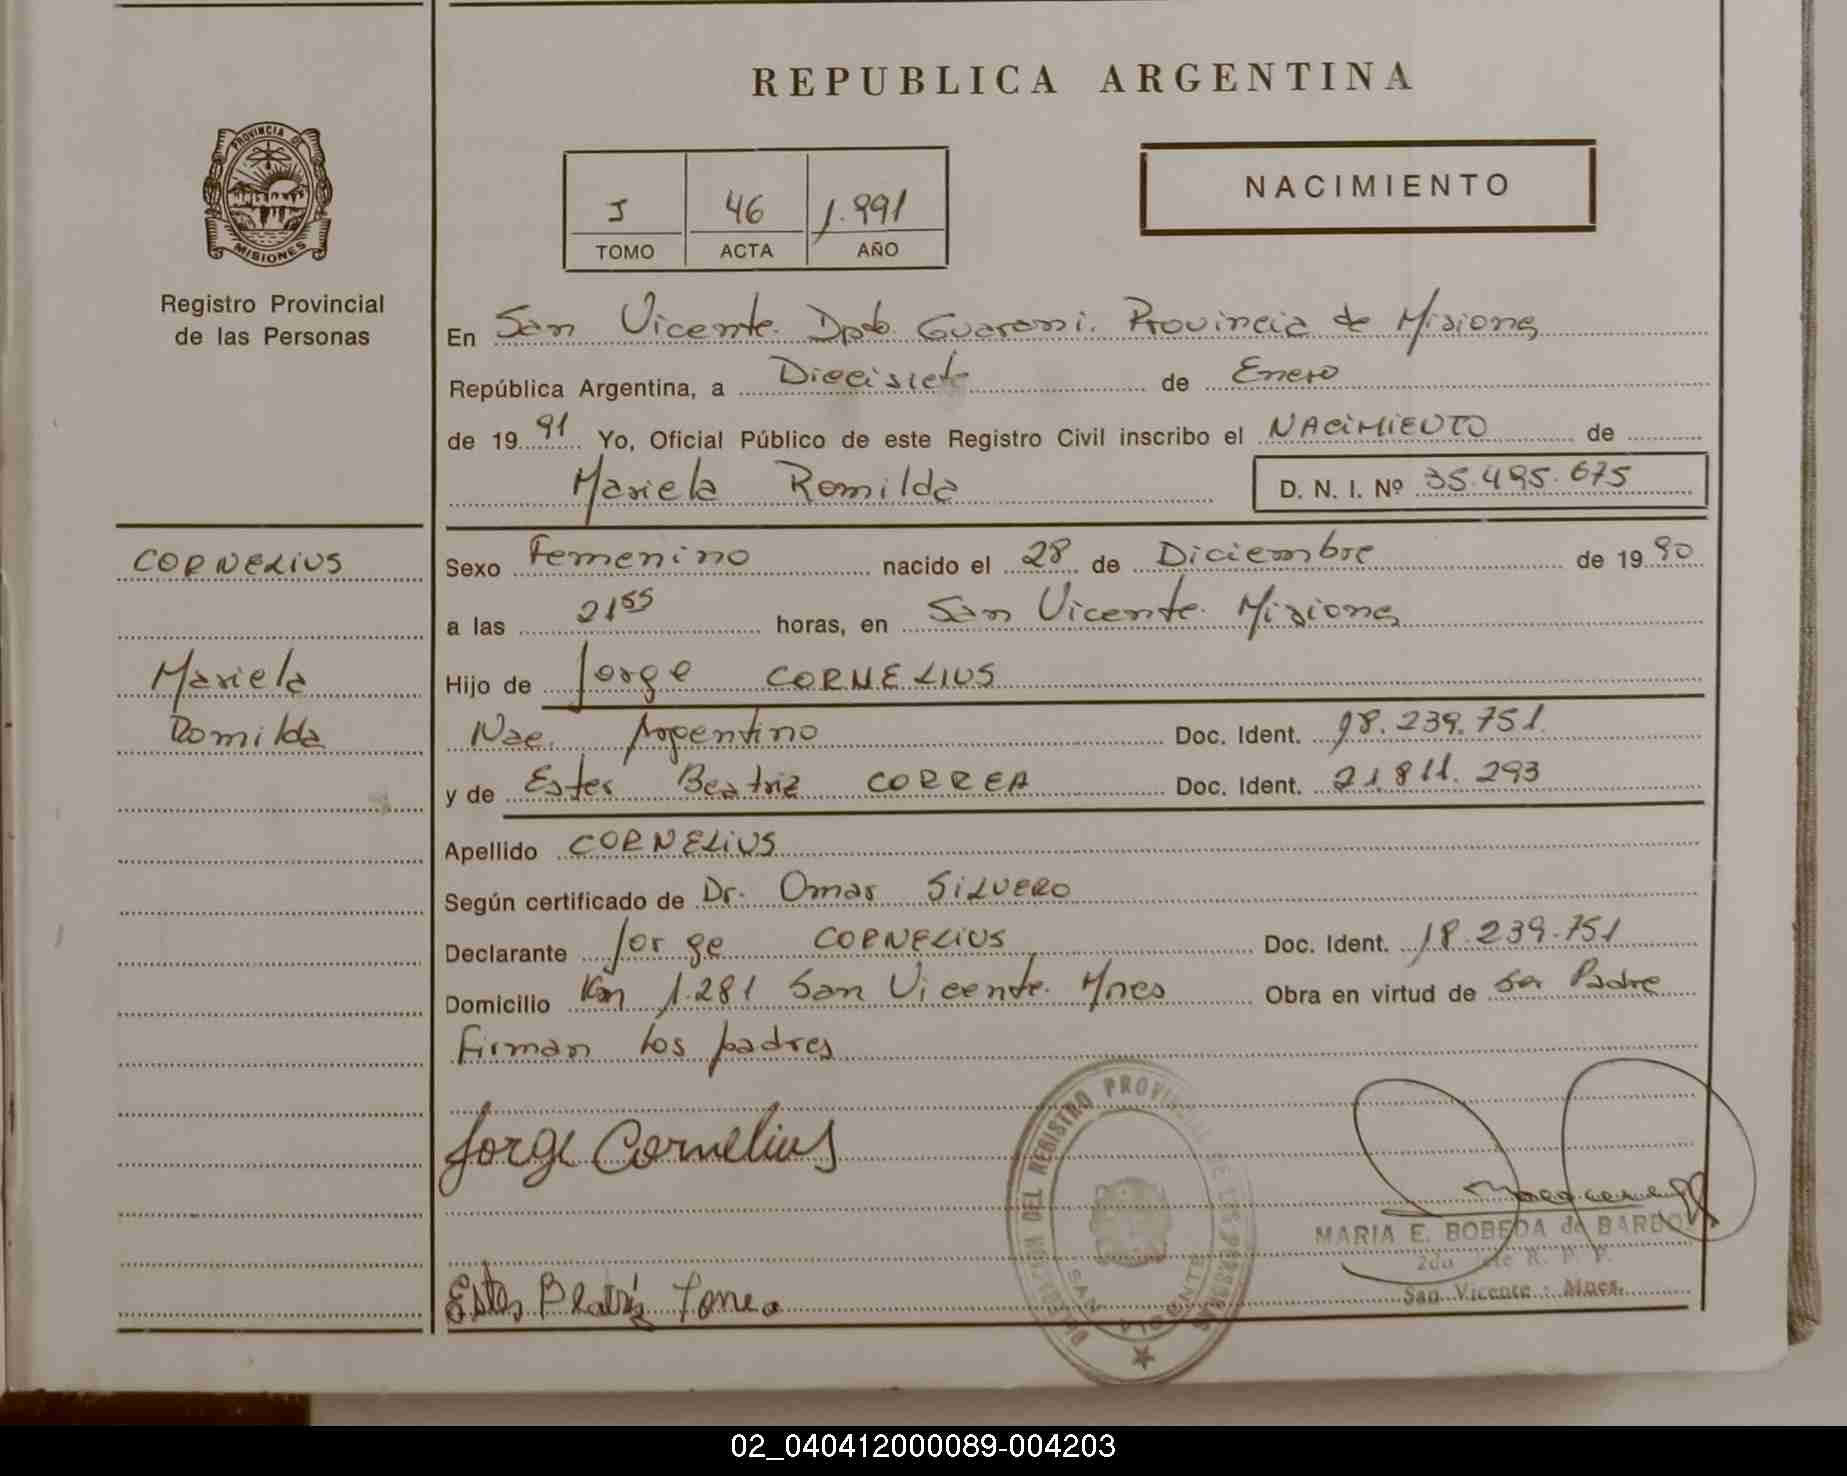 REPUBLICA ARGENTINA
PROVINCIA DE
MISIONES
Registro Provincial
de las Personas
J 46 1.991
TOMO ACTA AÑO
NACIMIENTO
En San Vicente. Dpto. Guarani. Provincia de Misiones
República Argentina, a Diecisiete de Enero
de 1991 Yo, Oficial Público de este Registro Civil inscribo el NACIMIENTO de
Mariela Romilda D. N. I. Nº 35.495.675
CORNELIUS
Mariela
Romilda
Sexo Femenino nacido el 28 de Diciembre de 1990
a las 21⁵⁵ horas, en San Vicente. Misiones
Hijo de Jorge CORNELIUS
Nac. Argentino Doc. Ident. 18.239.751
y de Ester Beatriz CORREA Doc. Ident. 21.811.293
Apellido CORNELIUS
Según certificado de Dr. Omar SILVERO
Declarante Jorge CORNELIUS Doc. Ident. 18.239.751
Domicilio Km 1.281 San Vicente. Mnes Obra en virtud de ser Padre
Firman los padres
Jorge Cornelius
DEL REGISTRO PROVINCIAL DE LAS PERSONAS
SAN VICENTE
MARIA E. BOBEDA de
San Vicente - Mnes.
Ester Beatriz
02_040412000089-004203